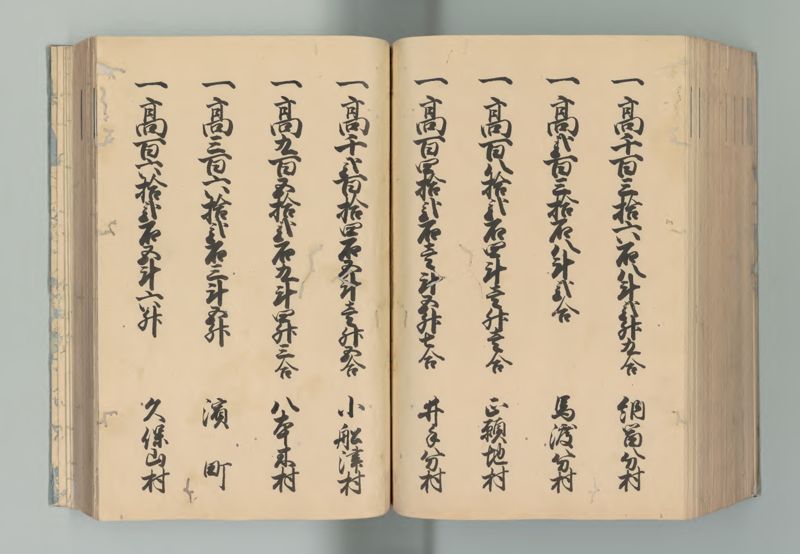 一高千百三拾六石八斗弐升九合 網曽分村
一高弐百三拾石八斗弐合 馬渡分村
一高百八拾弐石四斗壱升壱合 正頼地村
一高百四拾弐石壱斗五升七合 井手分村
一高千弐百拾四石五斗壱升五合 小船津村
一高九百五拾弐石九斗四升三合 八本木村
一高三百六拾弐石三斗五升 濱町
一高百六拾弐石五斗六升 久保山村